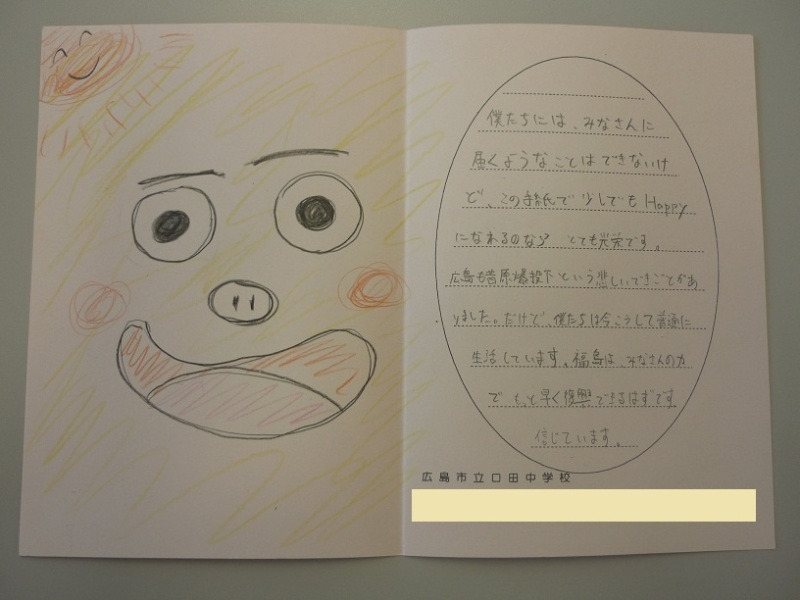 僕たちには、みなさんに
届くようなことはできないけ
ど、この手紙で少しでもHappy
になれるのなら とても光栄です。
広島も昔原爆投下という悲しいできごとがあ
りました。だけど、僕たちは今こうして普通に
生活しています。福島は、みなさんの力
で もっと早く復興できるはずです
信じています。
広島市立口田中学校